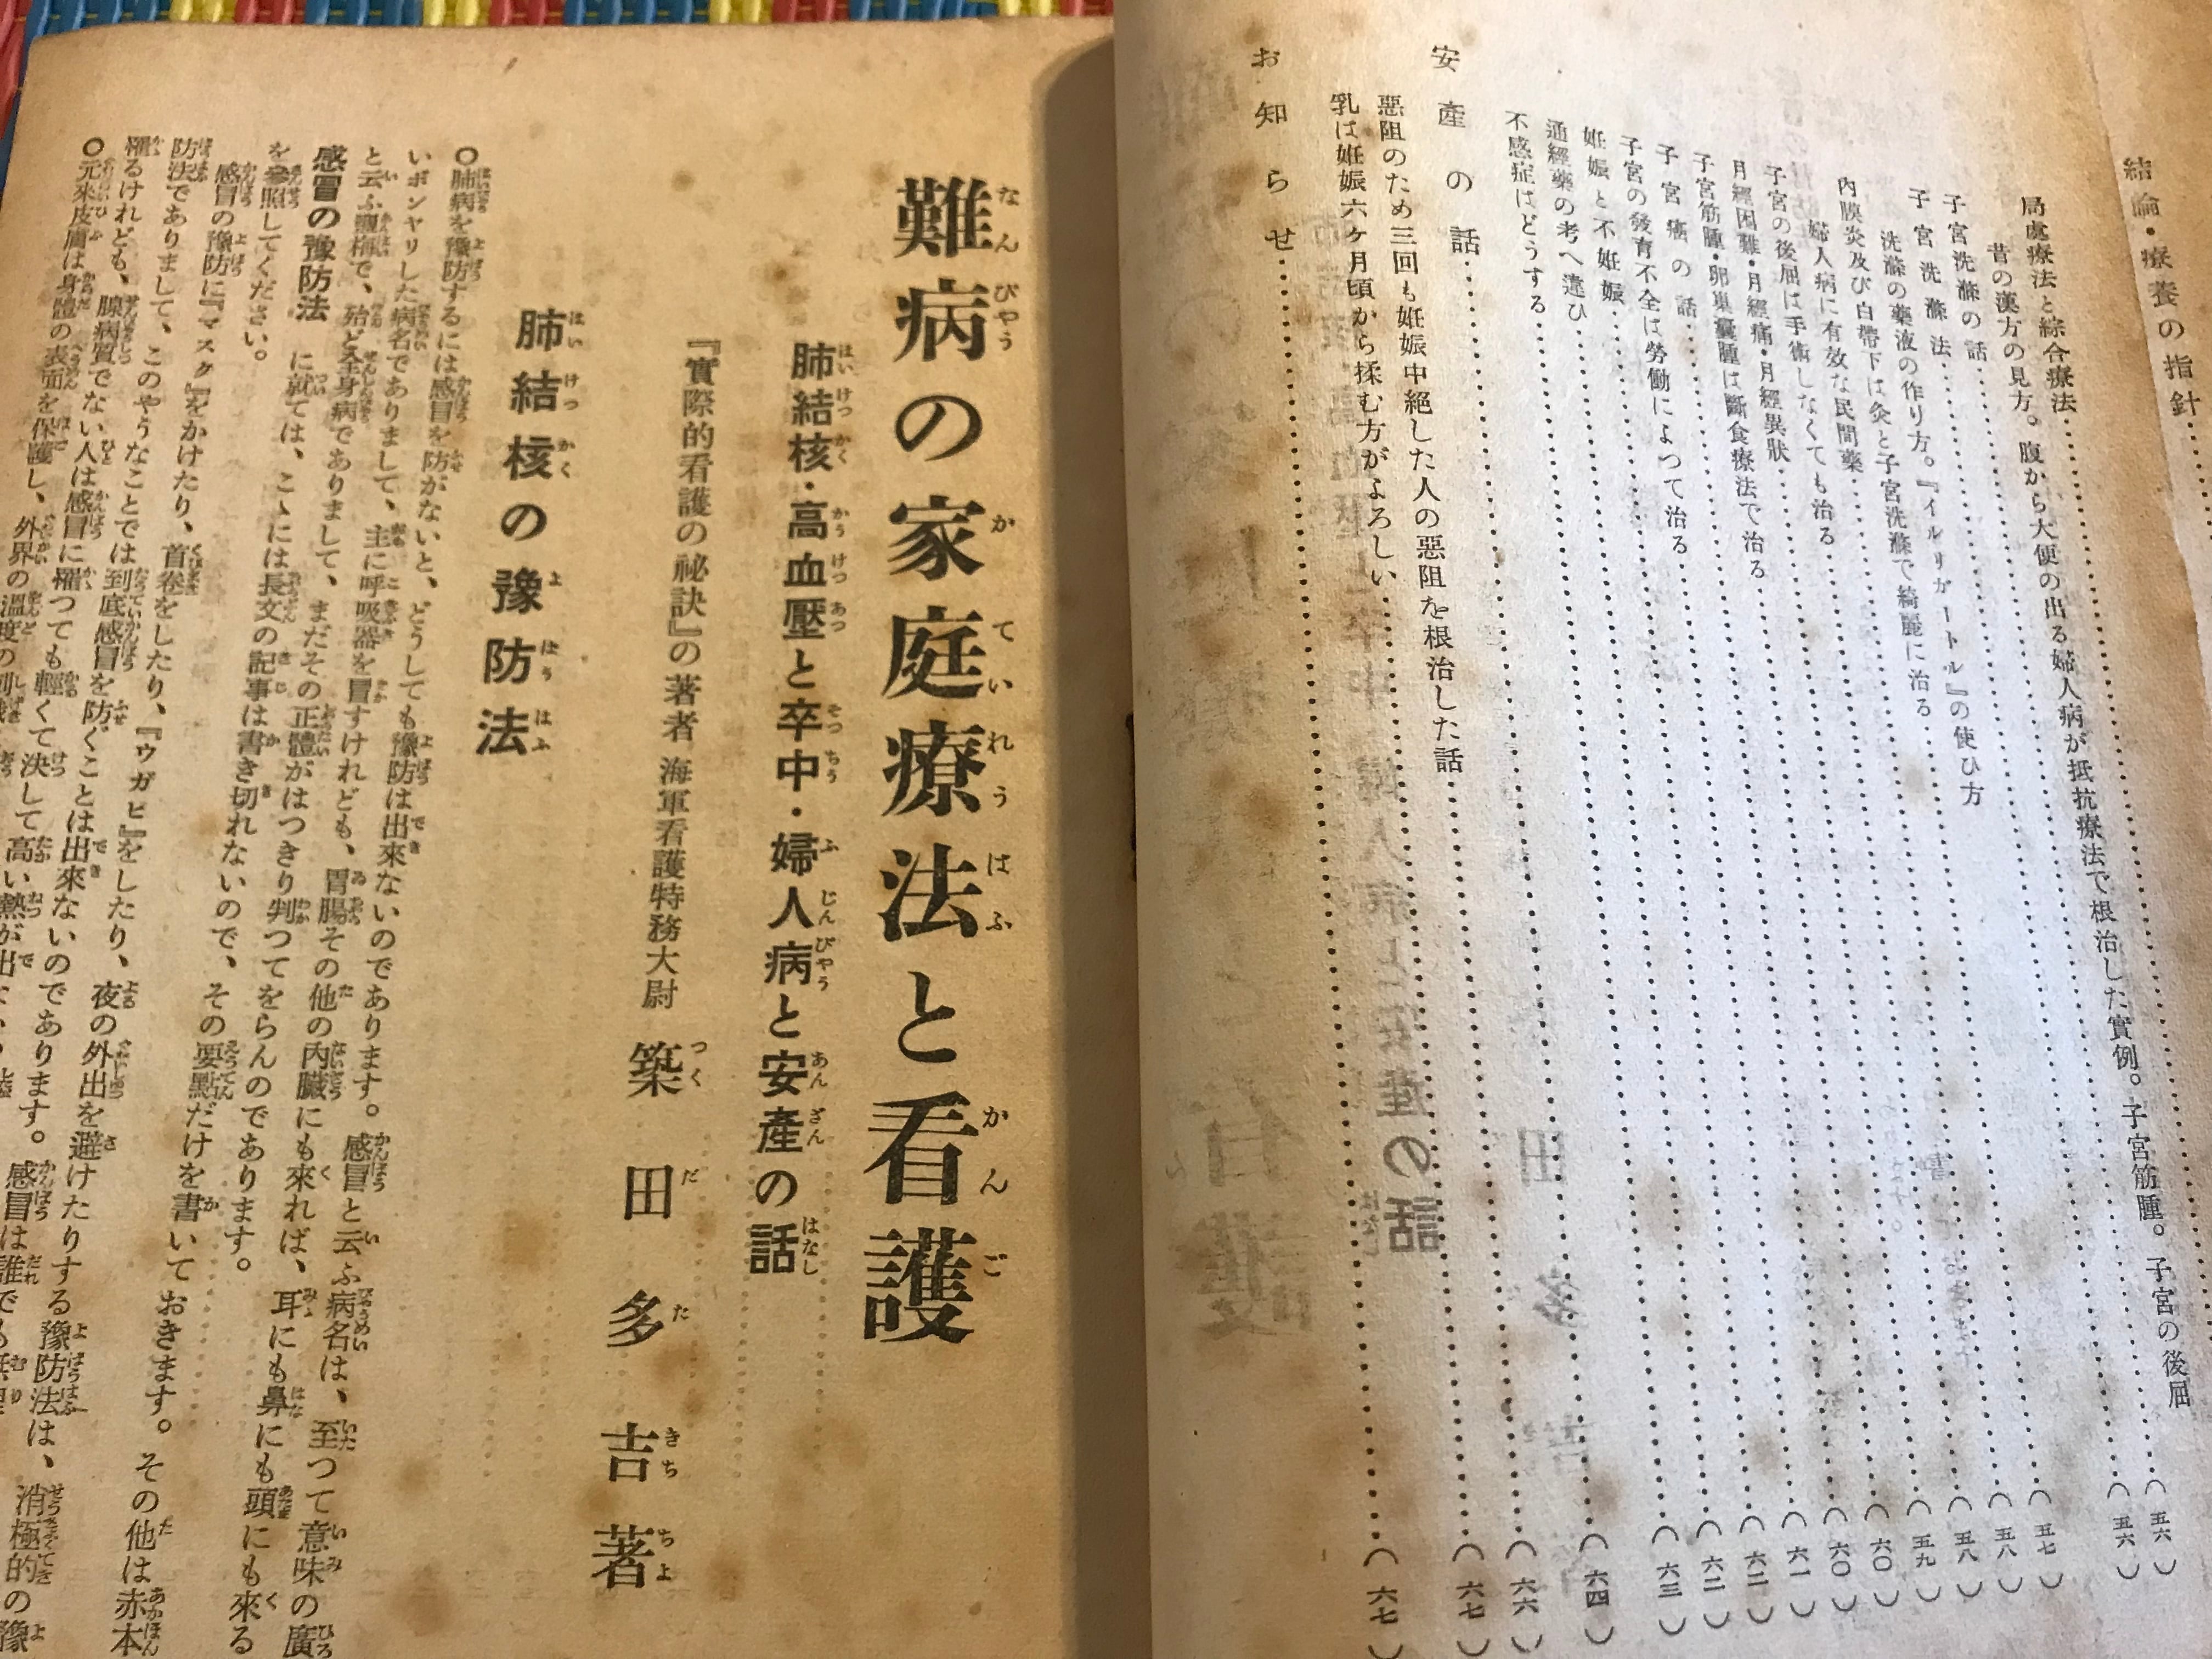 結論・療養の指針
局處療法と綜合療法
昔の漢方の見方。腹から大便の出る婦人病が抵抗療法で根治した實例。子宮筋腫。子宮の後屈
子宮洗滌の話
子宮洗滌法
洗滌の藥液の作り方。『イルリガートル』の使ひ方
内膜炎及び白帶下は灸と子宮洗滌で綺麗に治る
婦人病に有效な民間藥
子宮の後屈は手術しなくても治る
月經困難・月經痛・月經異狀
子宮筋腫・卵巢囊腫は斷食療法で治る
子宮癌の話
子宮の發育不全は勞働によつて治る
妊娠と不妊娠
通經藥の考へ違ひ
不感症はどうする
安産の話
惡阻のため三回も妊娠中絕した人の惡阻を根治した話
乳は妊娠六ヶ月頃から揉む方がよろしい
お知らせ
(五六)
(五六)
(五七)
(五八)
(五八)
(五九)
(六〇)
(六〇)
(六一)
(六二)
(六二)
(六三)
(六四)
(六六)
(六七)
(六七)
難病の家庭療法と看護
肺結核・高血壓と卒中・婦人病と安産の話
『實際的看護の祕訣』の著者 海軍看護特務大尉 築田多吉著
肺結核の豫防法
〇肺病を豫防するには感冒を防がないと、どうしても豫防は出來ないのであります。感冒と云ふ病名は、至つて意味の廣
いボンヤリした病名でありまして、主に呼吸器を冒すけれども、胃腸その他の内臟にも來れば、耳にも鼻にも頭にも來る
と云ふ鹽梅で、殆ど全身病でありまして、まだその正體がはつきり判つてをらんのであります。
感冒の豫防法 に就ては、こゝには長文の記事は書き切れないので、その要點だけを書いておきます。その他は赤本
を參照してください。
感冒の豫防に『マスク』をかけたり、首卷をしたり、『ウガヒ』をしたり、夜の外出を避けたりする豫防法は、消極的の豫
防法でありまして、このやうなことでは到底感冒を防ぐことは出來ないのであります。感冒は誰でも
罹るけれども、腺病質でない人は感冒に罹つても輕くて決して高い熱が出
〇元來皮膚は身體の表面を保護し、外界の溫度の